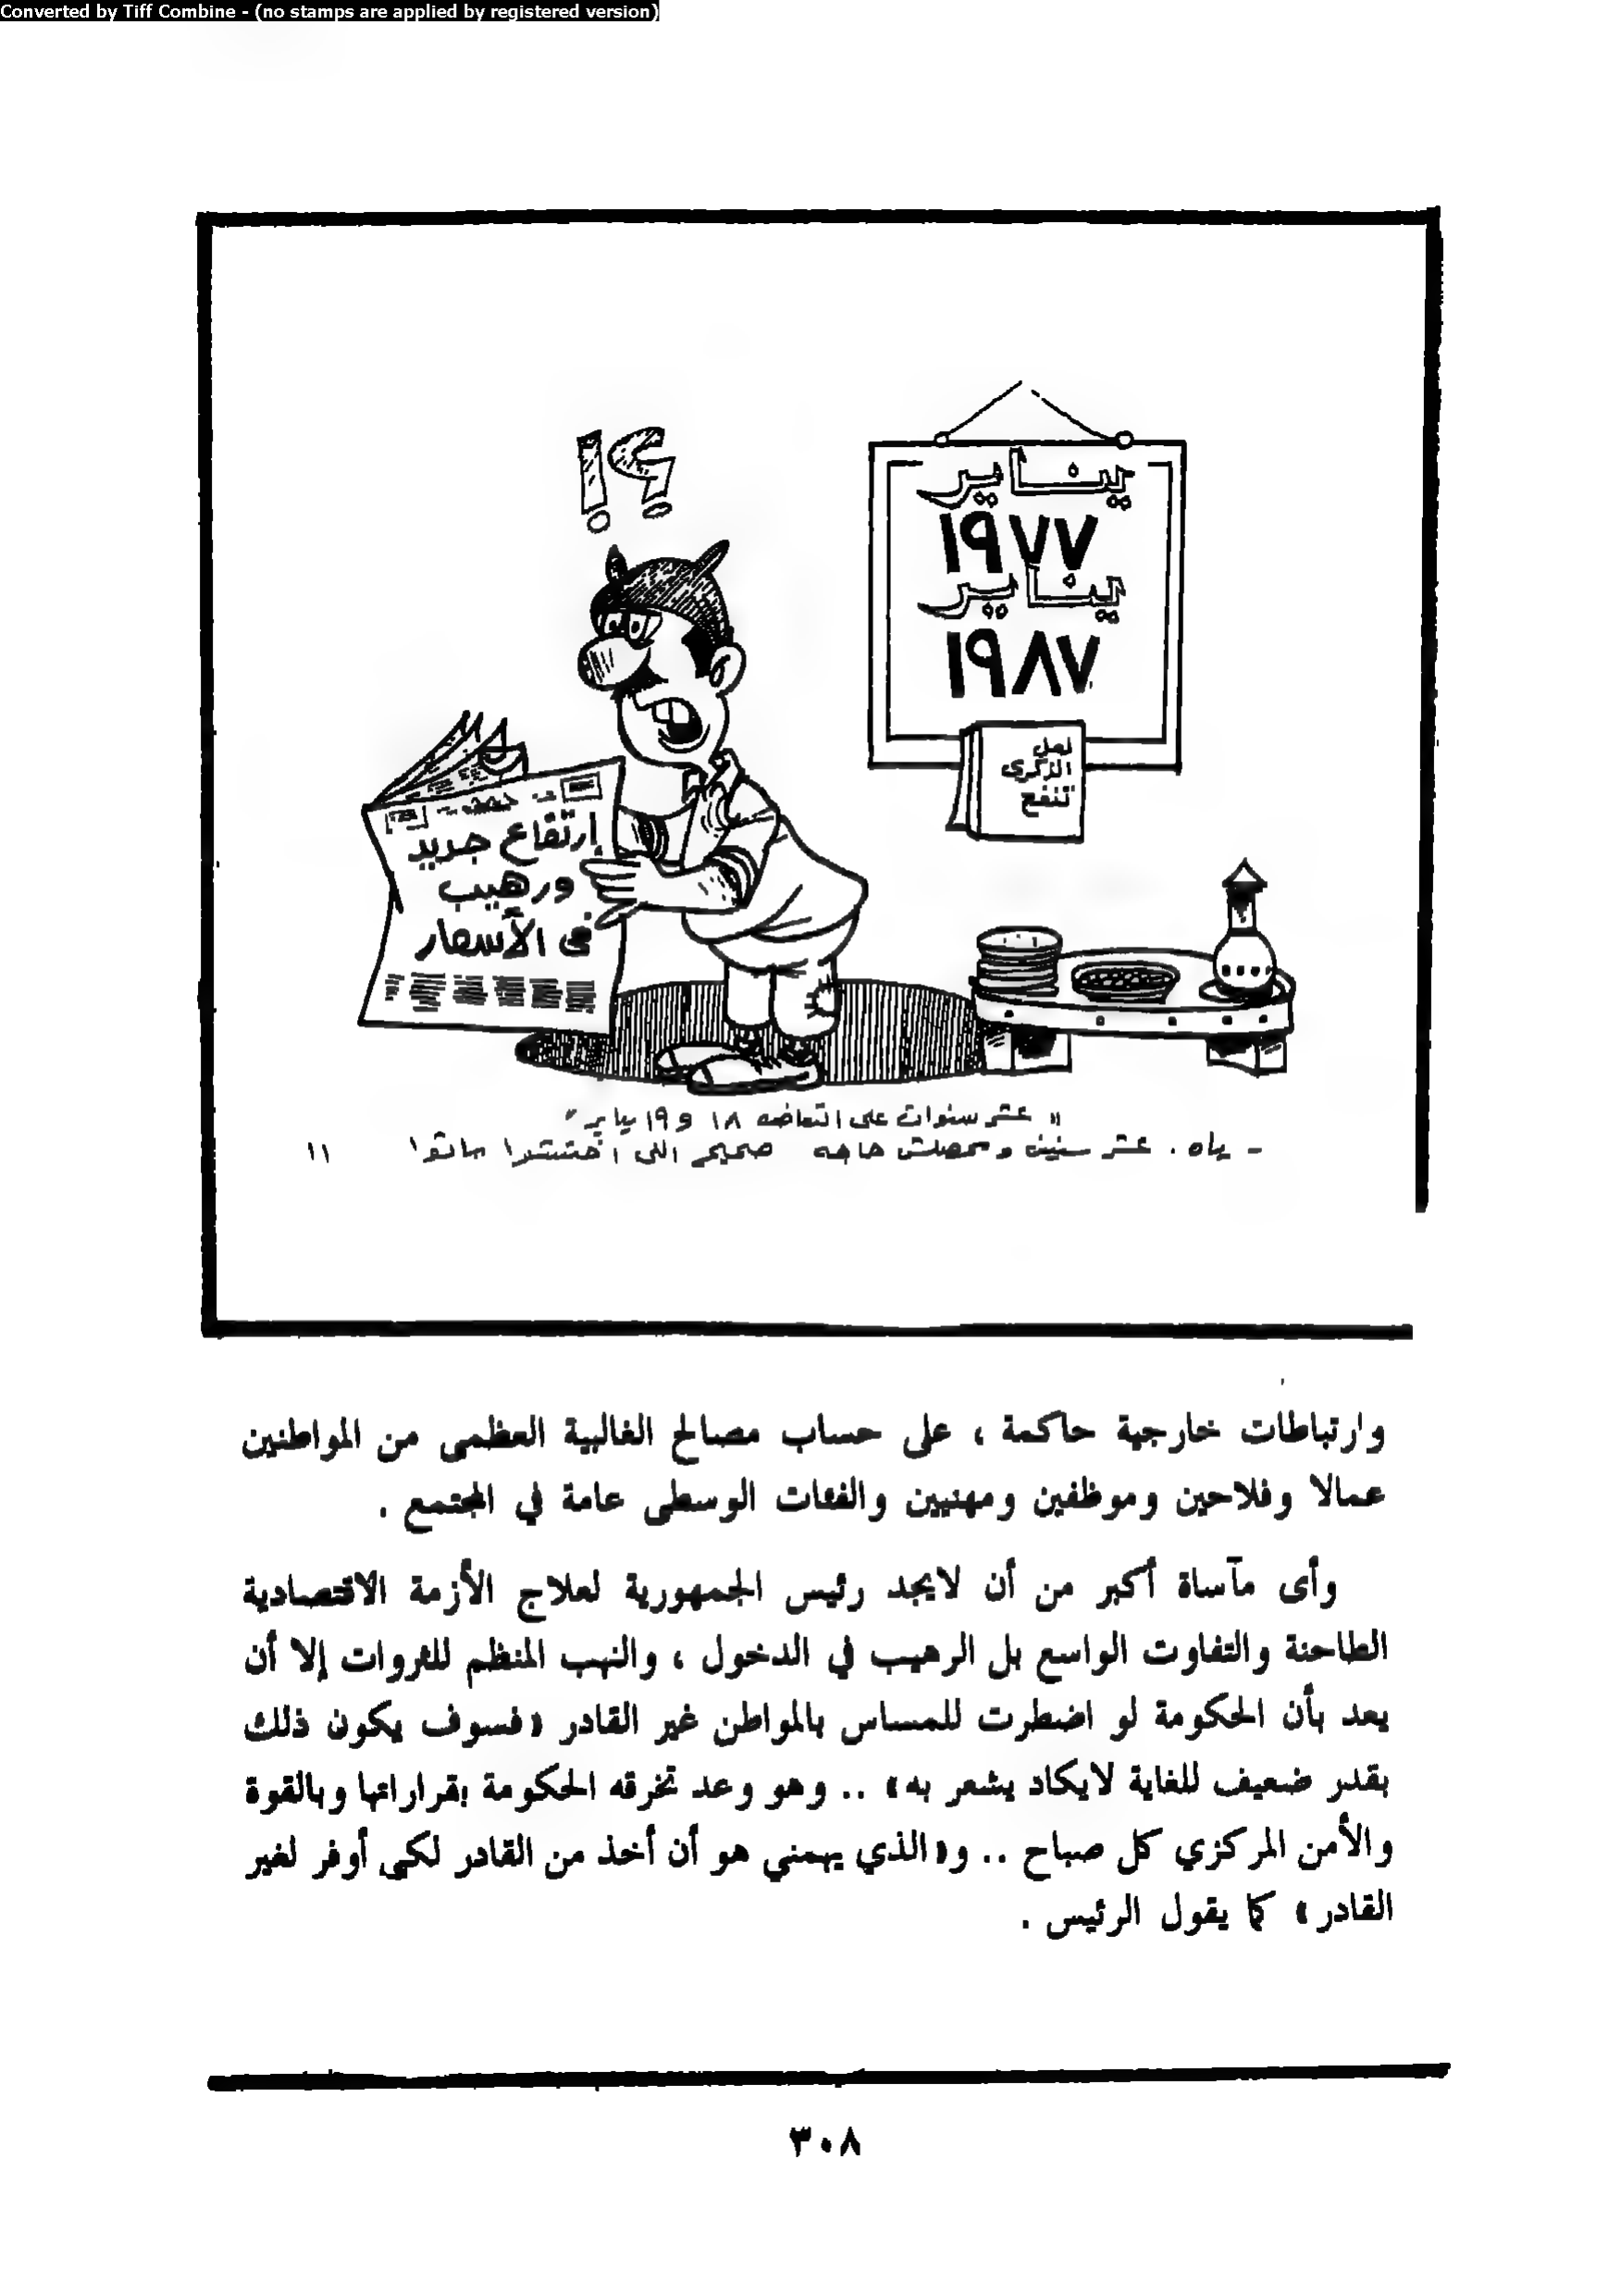 Converted by Tiff Combine - (no stamps are applied by registered version)
؟!
يناير
١٩٧٧
يناير
١٩٨٧
لعل
الذكرى
تنفع
إرتفاع جديد
ورهيب
في الأسعار
" عشر سنوات على انتفاضه ١٨ و ١٩ يناير "
- ياه . عشر سنين ومحصلش حاجه صحيح اللى اختشوا ماتوا !!
وارتباطات خارجية حاكمة ، على حساب مصالح الغالبية العظمى من المواطنين
عمالا وفلاحين وموظفين ومهنيين والفئات الوسطى عامة في المجتمع .
وأى مآساة أكبر من أن لايجد رئيس الجمهورية لعلاج الأزمة الاقتصادية
الطاحنة والتفاوت الواسع بل الرهيب في الدخول ، والنهب المنظم للثروات إلا أن
يعد بأن الحكومة لو اضطرت للمساس بالمواطن غير القادر «فسوف يكون ذلك
بقدر ضعيف للغاية لايكاد يشعر به» .. وهو وعد تخرقه الحكومة بقراراتها وبالقوة
والأمن المركزي كل صباح .. و«الذي يهمني هو أن أخذ من القادر لكى أوفر لغير
القادر» كما يقول الرئيس .
٣٠٨